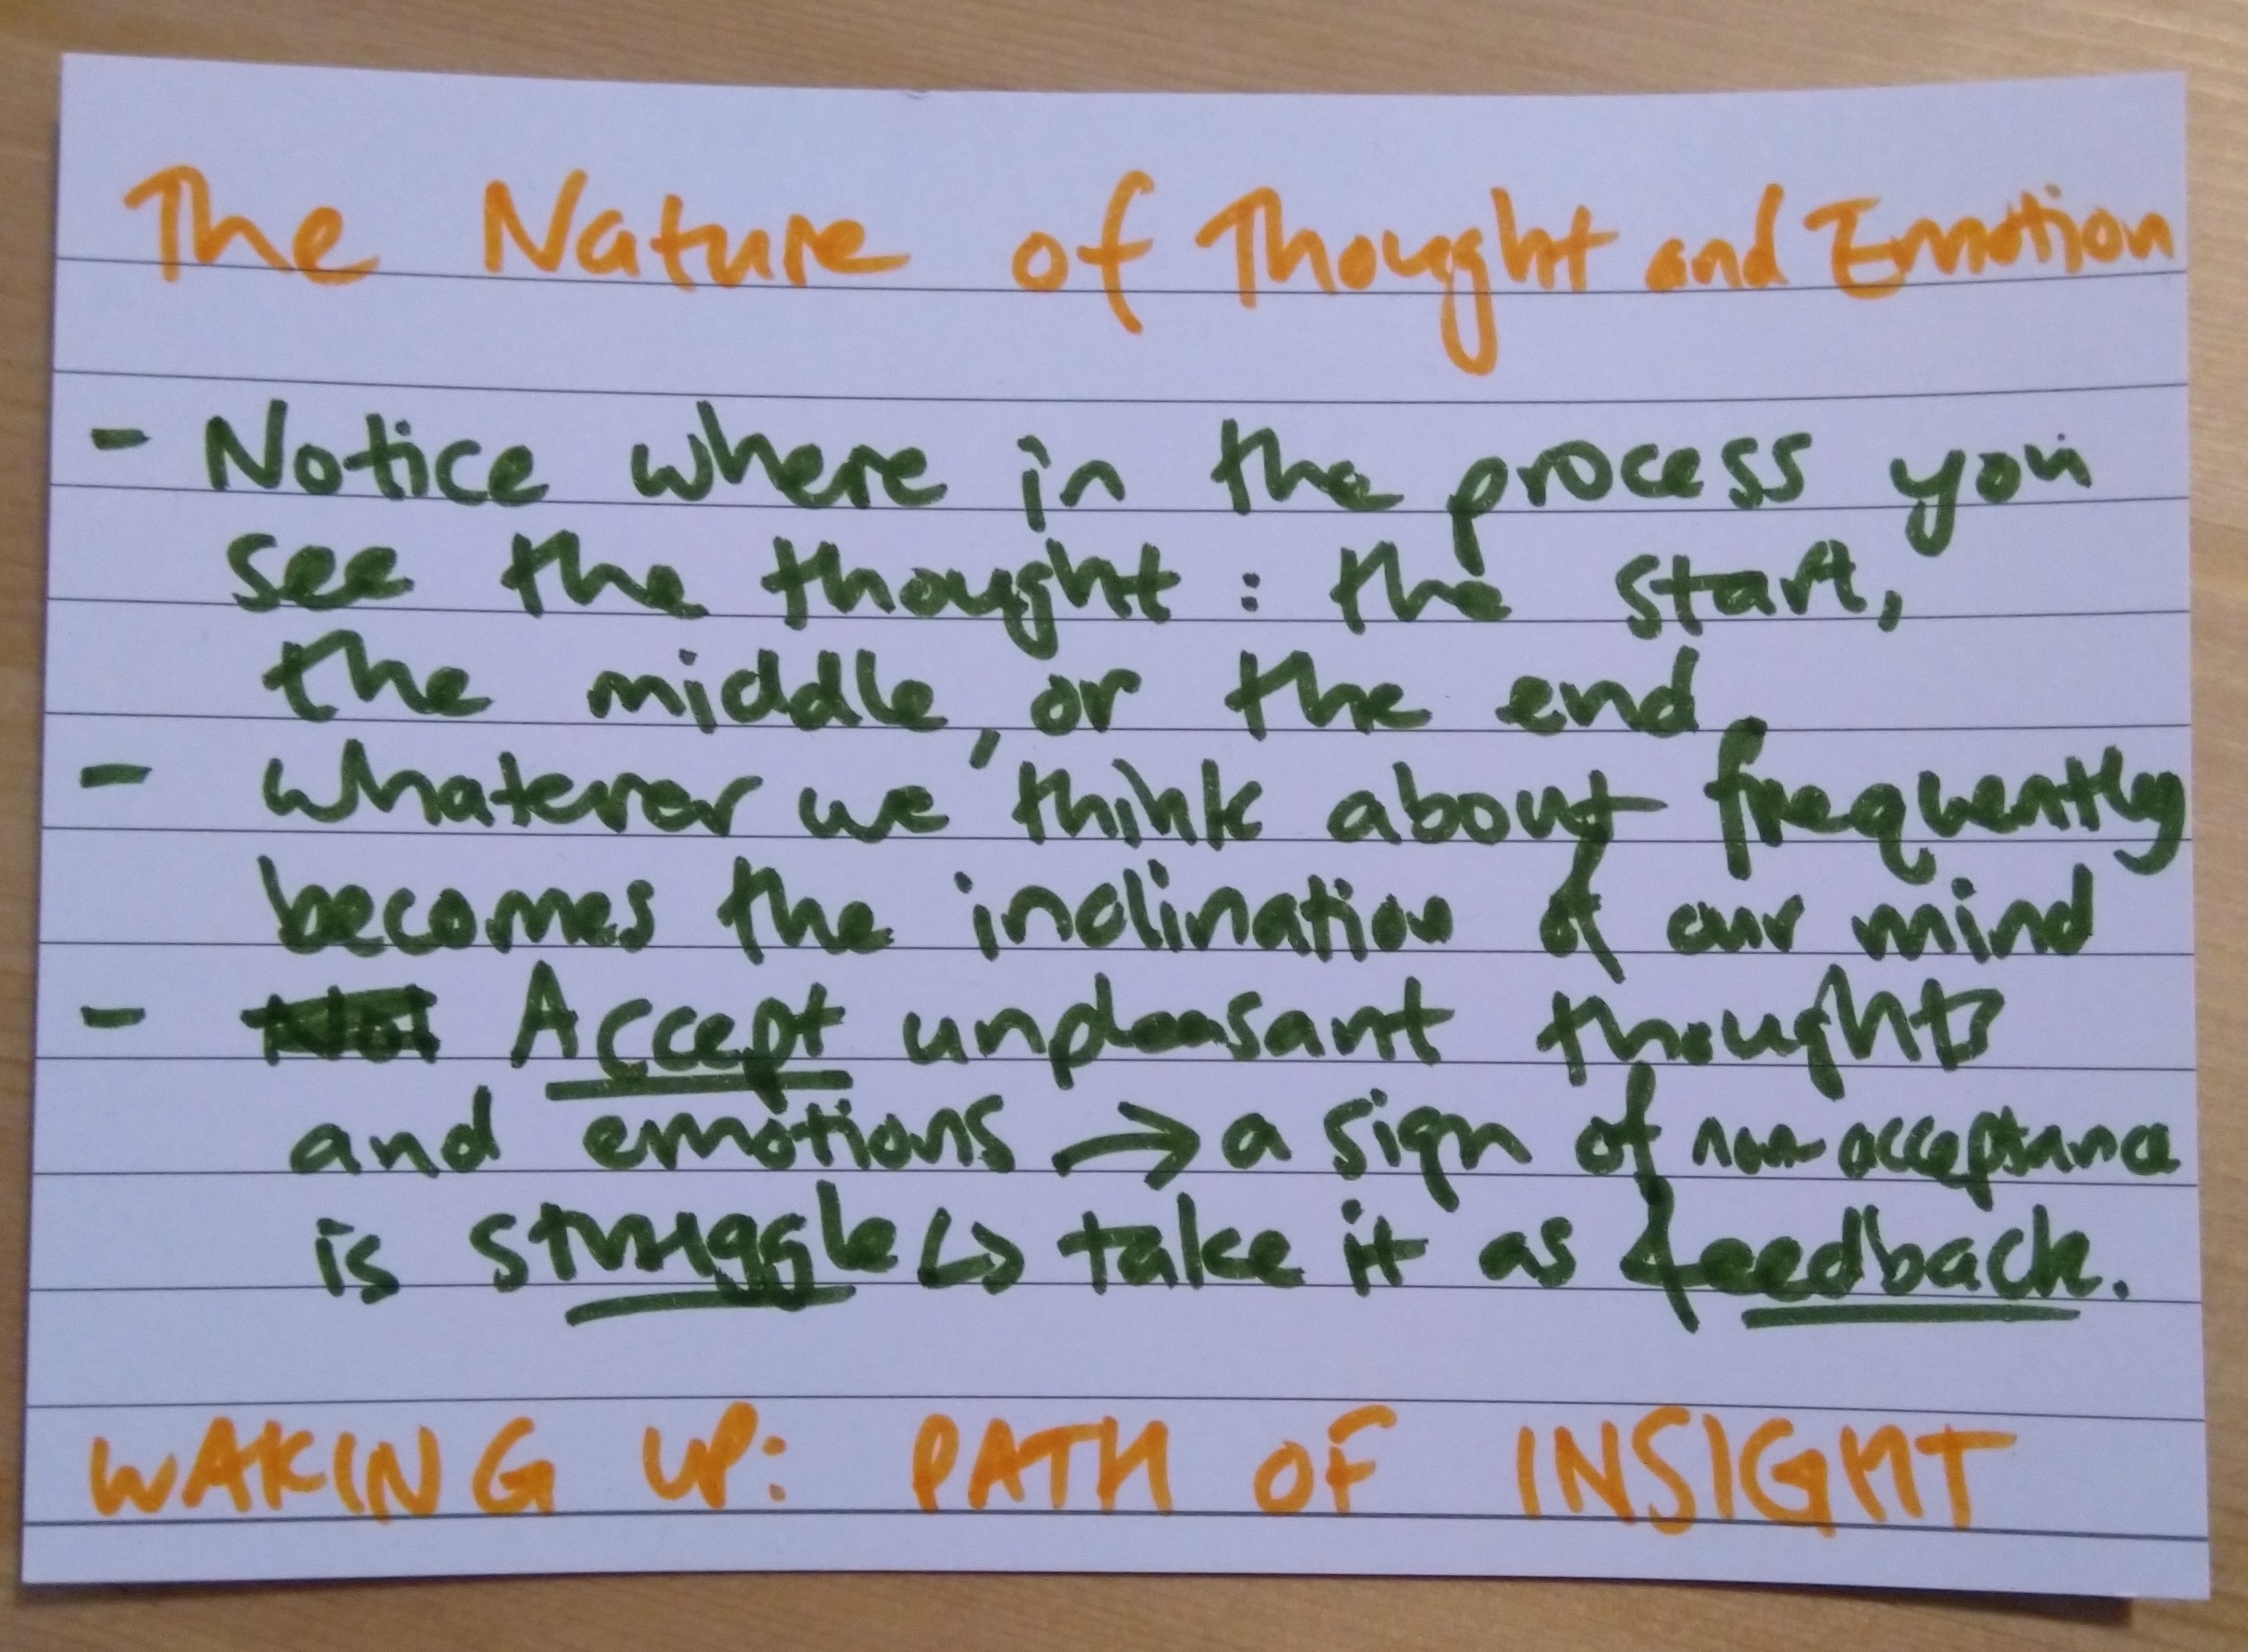 The Nature of Thought and Emotion
- Notice where in the process you
see the thought: the start,
the middle, or the end.
- Whatever we think about frequently
becomes the inclination of our mind
- Not Accept unpleasant thoughts
and emotions → a sign of non-acceptance
is struggle ↳ take it as feedback.
WAKING UP: PATH OF INSIGHT